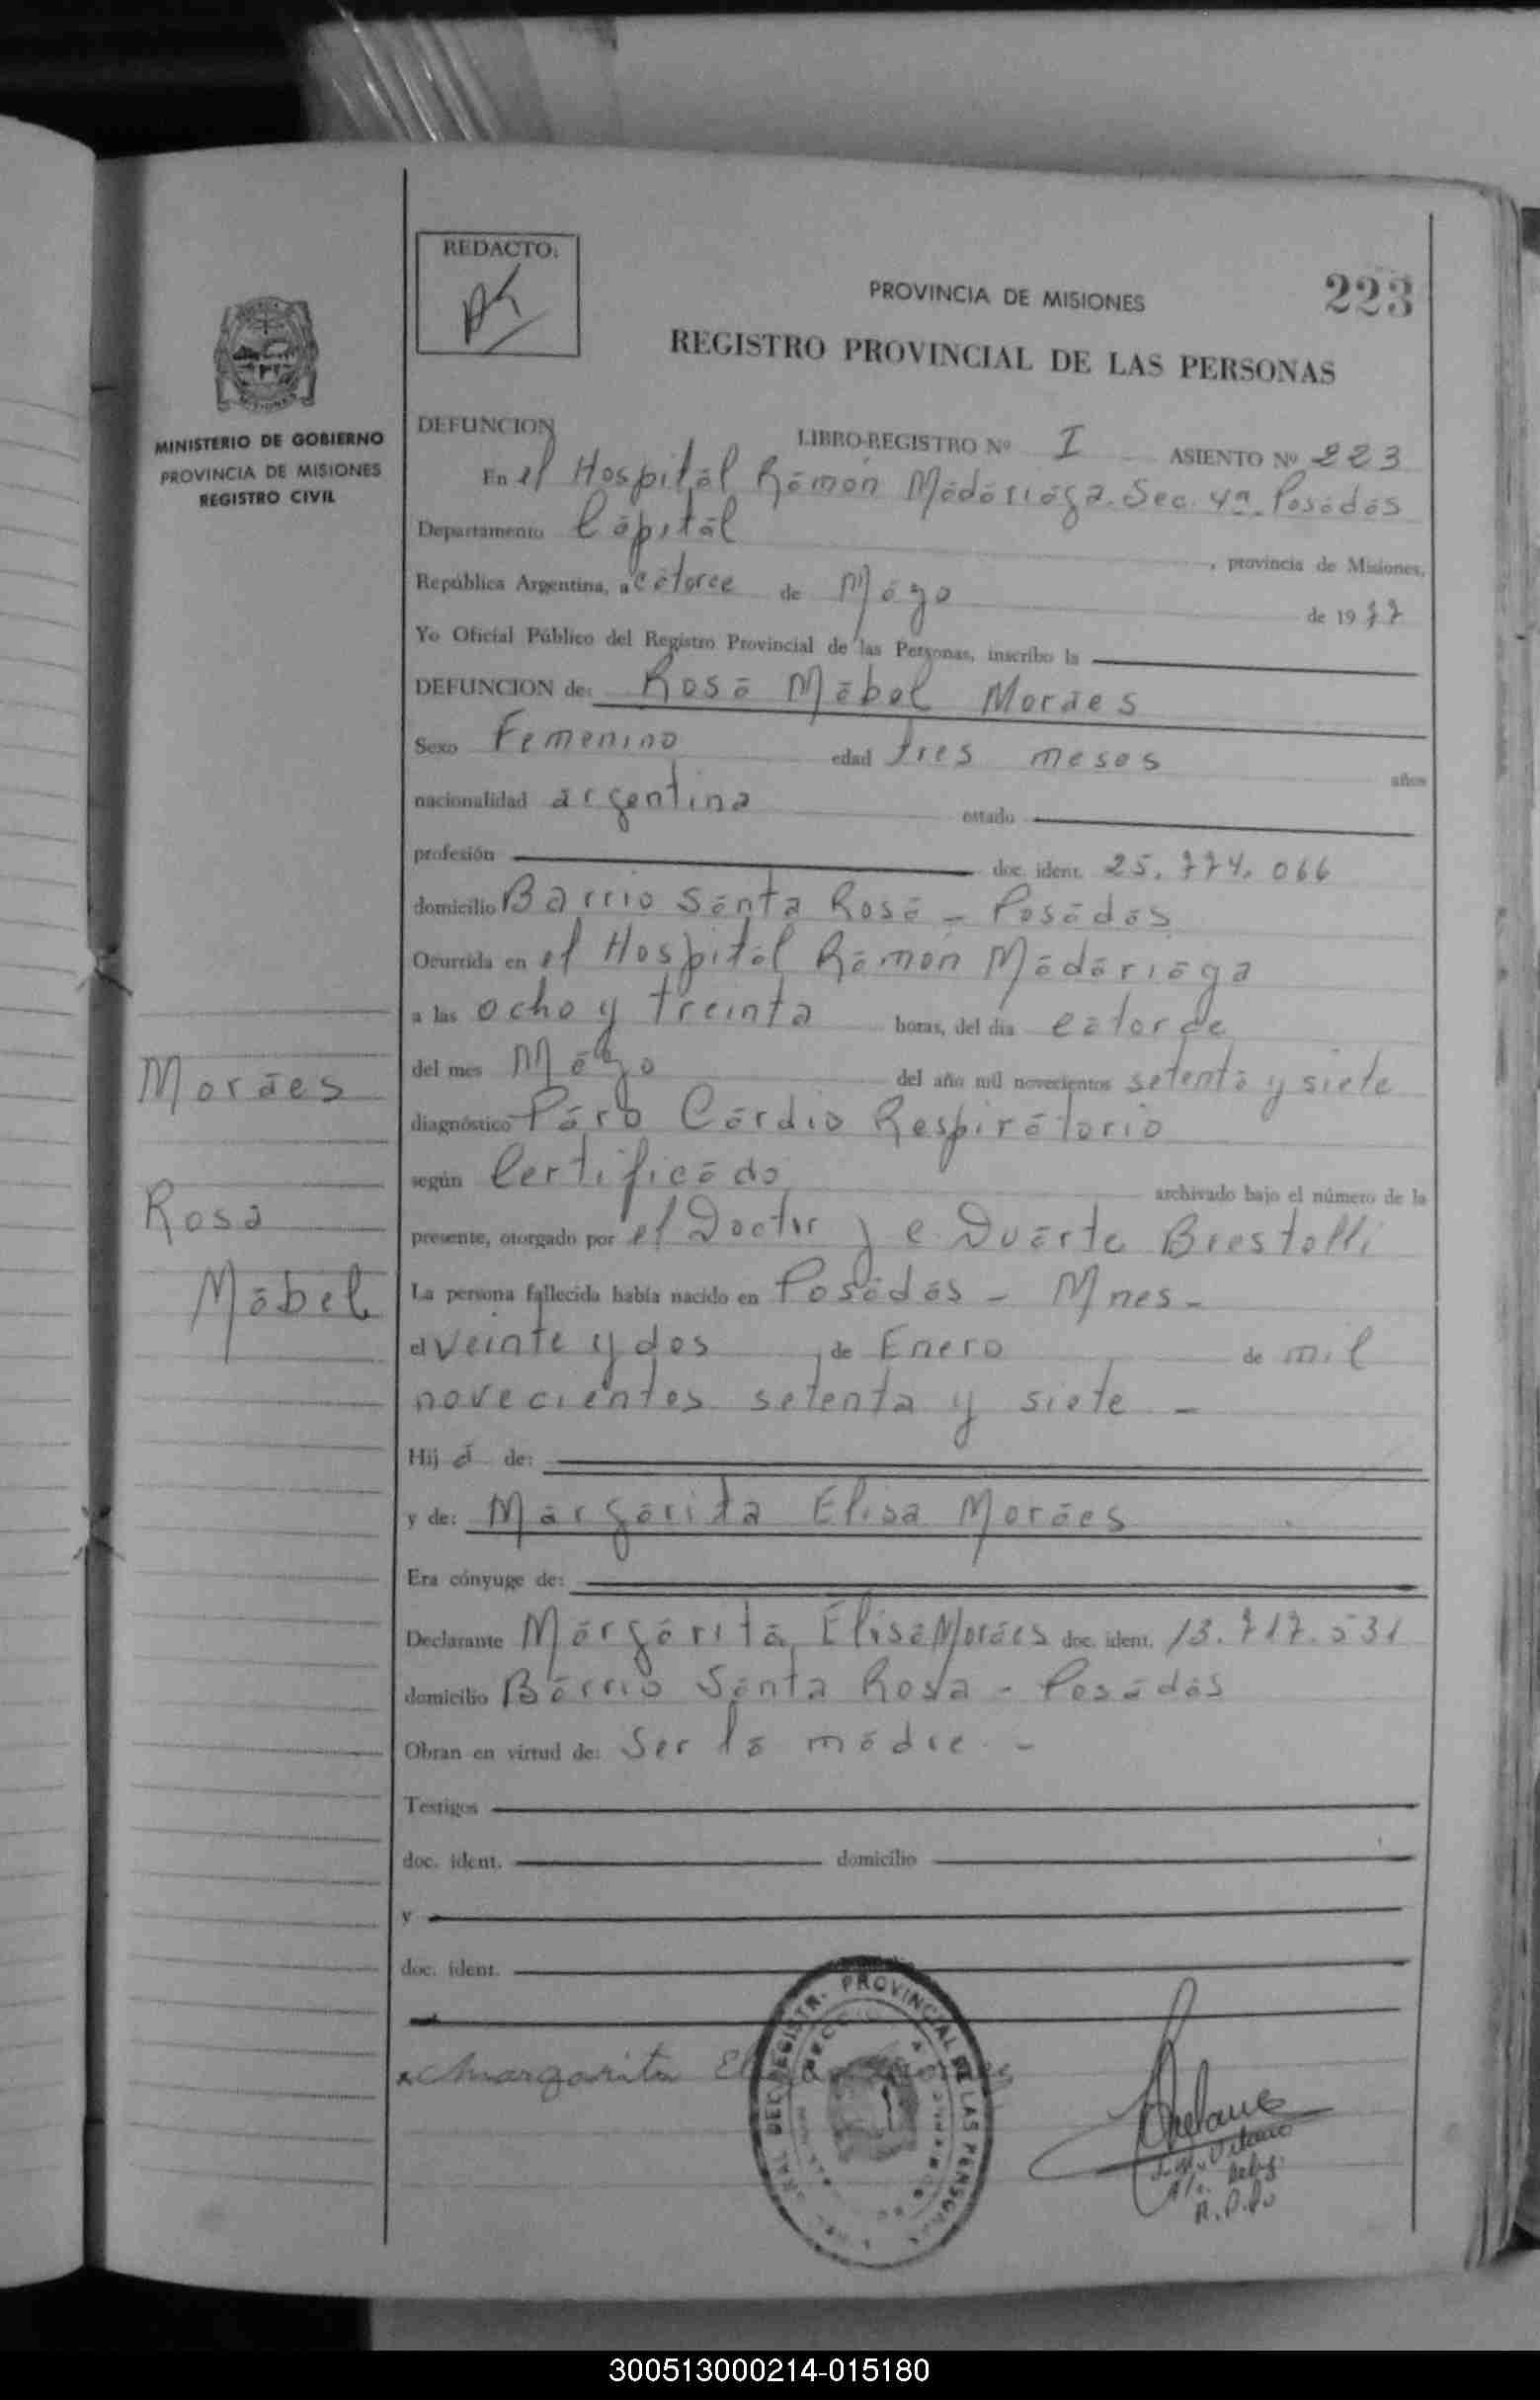 REDACTO:
PROVINCIA DE MISIONES
223
REGISTRO PROVINCIAL DE LAS PERSONAS
MINISTERIO DE GOBIERNO
PROVINCIA DE MISIONES
REGISTRO CIVIL
DEFUNCION
LIBRO-REGISTRO Nº I ASIENTO Nº 223
En el Hospital Ramón Madariaga. Sec. 4ª. Posadas
Departamento Capital , provincia de Misiones,
República Argentina, a catorce de Mayo de 1977
Yo Oficial Público del Registro Provincial de las Personas, inscribo la
DEFUNCION de: Rosa Mabel Moraes
Sexo Femenino edad tres meses años
nacionalidad argentina estado
profesión doc. ident. 25.774.066
domicilio Barrio Santa Rosa - Posadas
Ocurrida en el Hospital Ramón Madariaga
a las ocho y treinta horas, del día catorce
del mes Mayo del año mil novecientos setenta y siete
diagnóstico Paro Cardio Respiratorio
según Certificado archivado bajo el número de la
presente, otorgado por el Doctor J e Duarte Brestolli
La persona fallecida había nacido en Posadas - Mnes -
el veinte y dos de Enero de mil
novecientos setenta y siete -
Hij a de:
y de: Margarita Elisa Moraes
Era cónyuge de:
Declarante Margarita Elisa Moraes doc. ident. 13.717.531
domicilio Barrio Santa Rosa - Posadas
Obran en virtud de: Ser la madre -
Testigos
doc. ident. domicilio
y
doc. ident.
Moraes
Rosa
Mabel
Margarita
PROVINCIAL DE LAS PERSONAS
300513000214-015180